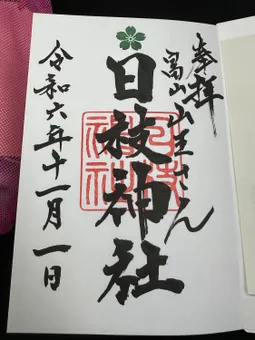 奉拝
富山山王さん
日枝神社
令和六年十一月一日
日枝神社